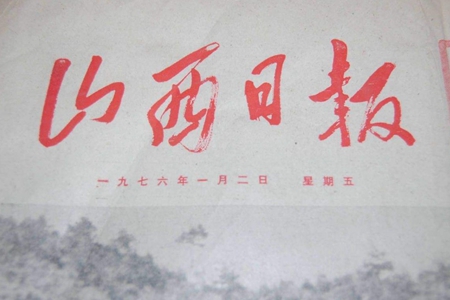 山西日报
一九七六年一月二日 星期五